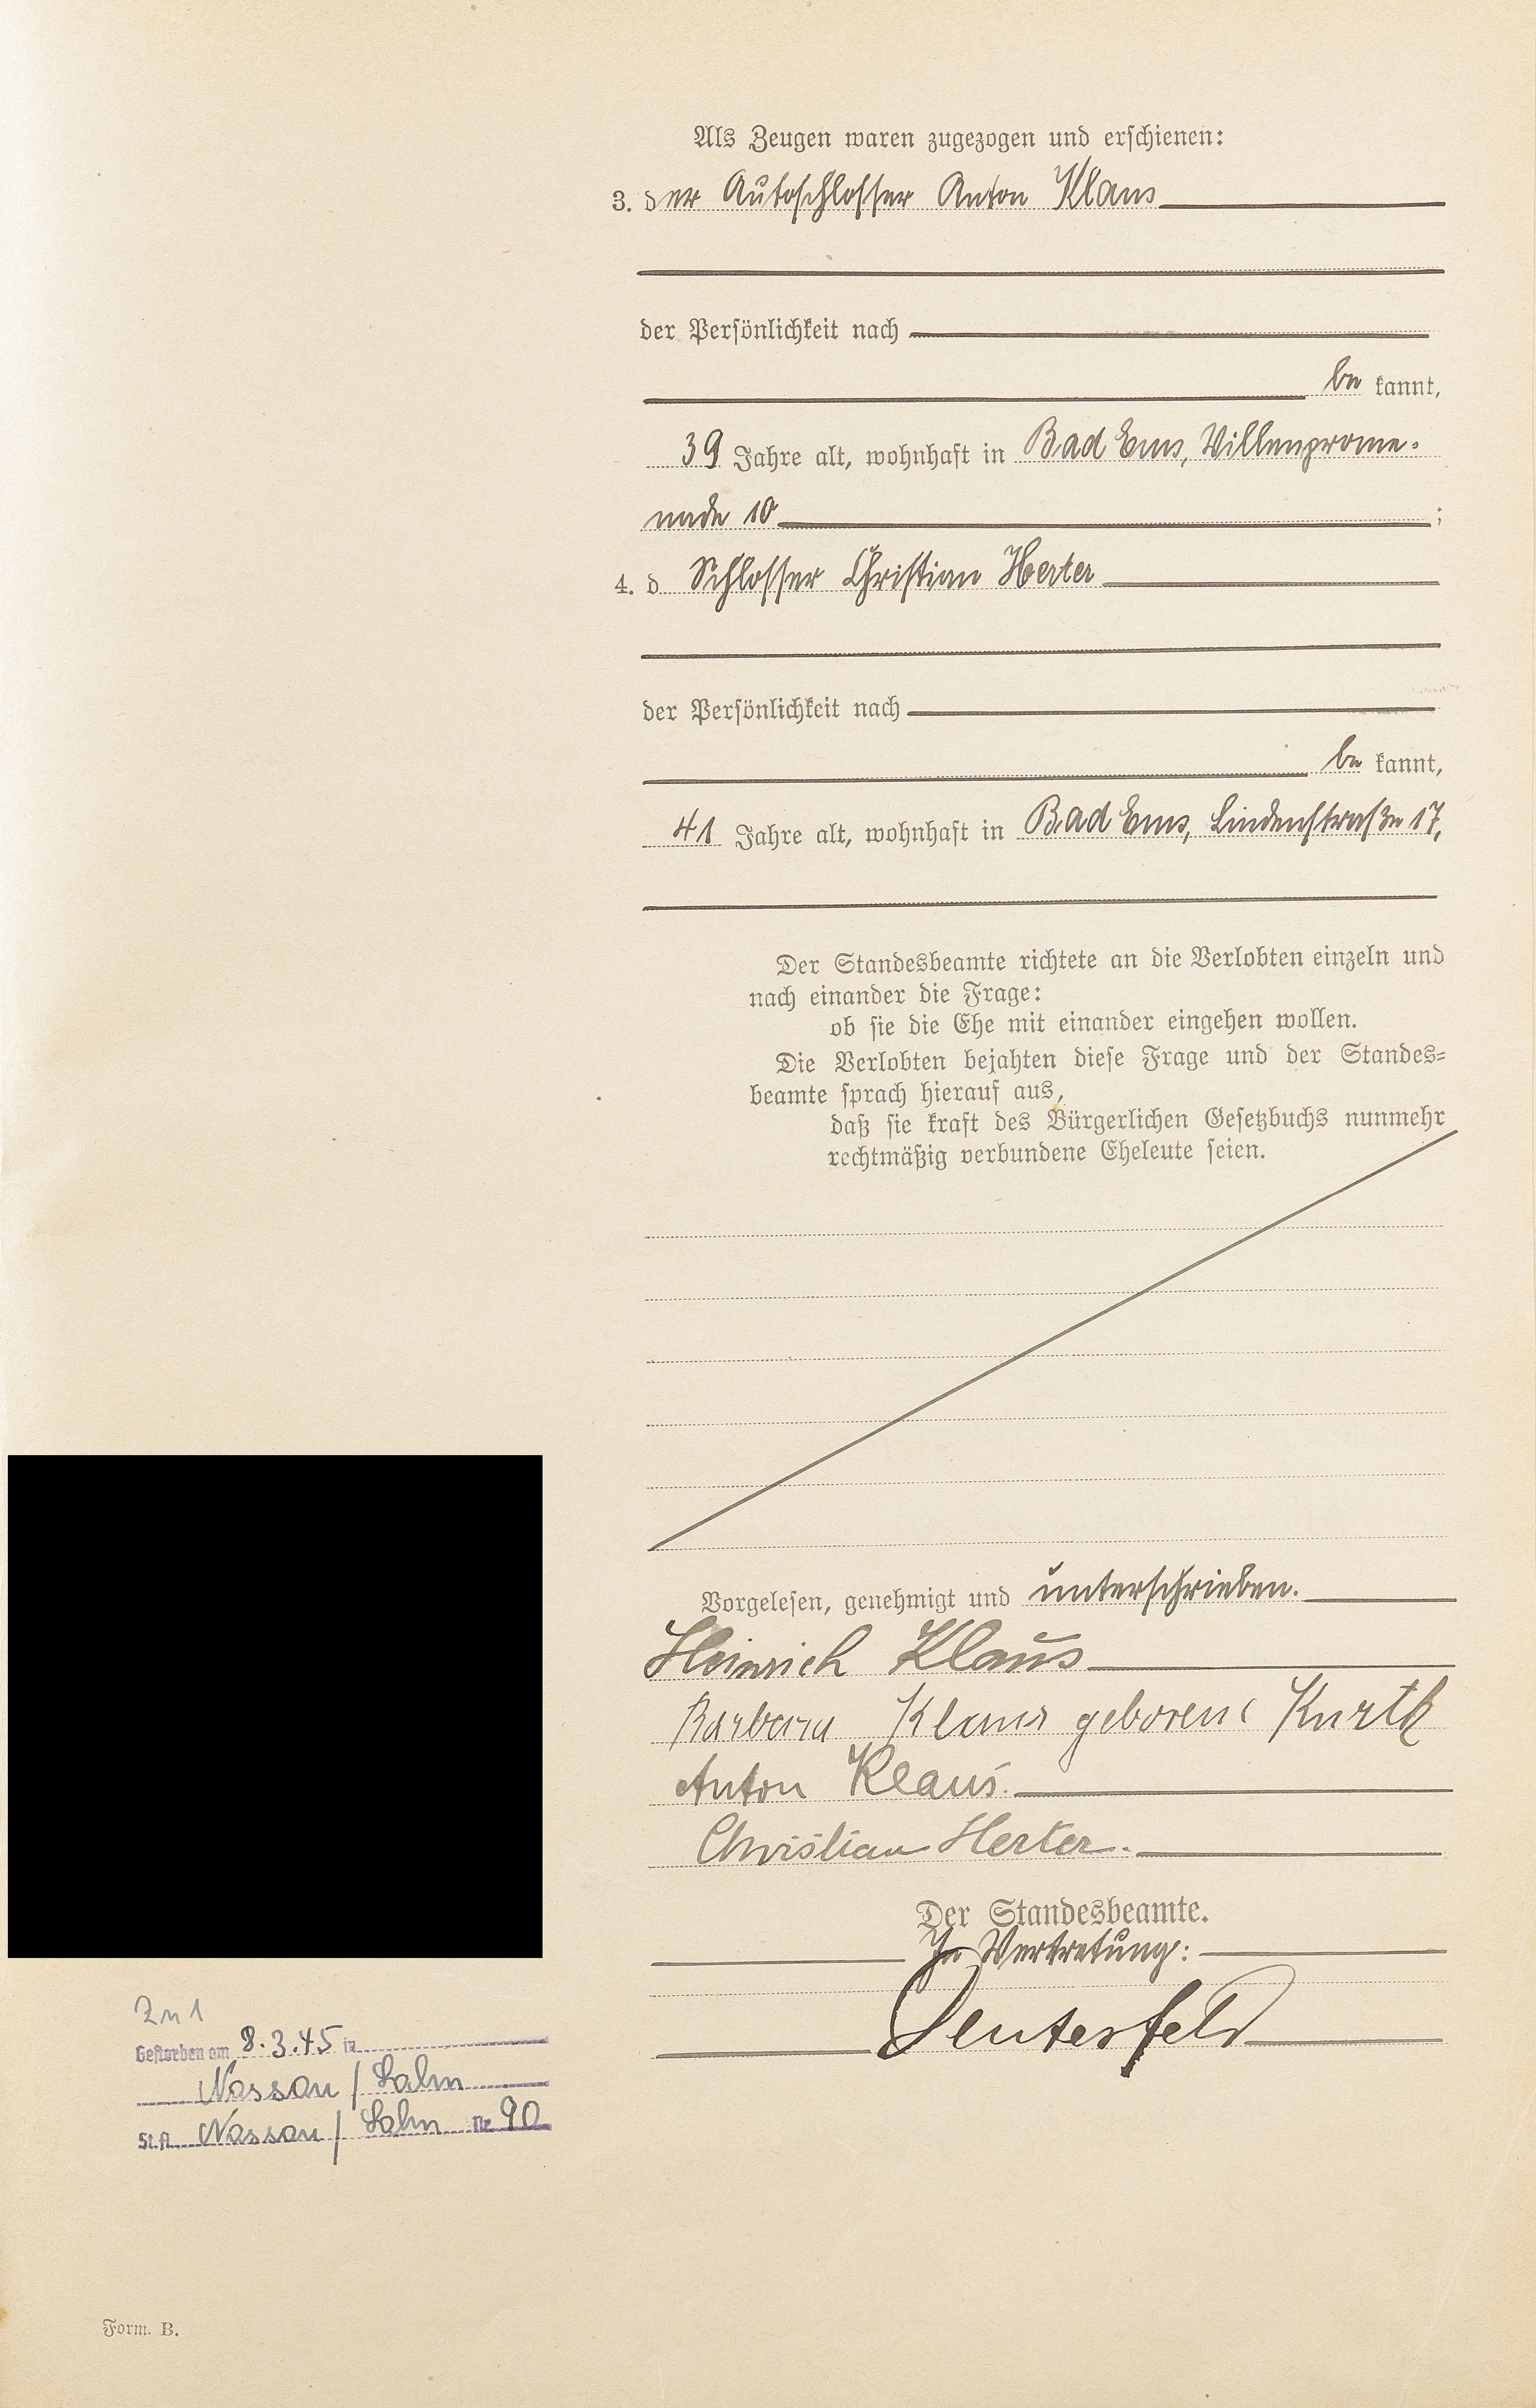 Als Zeugen waren zugezogen und erschienen:
3. der Autoschlosser Anton Klaus
der Persönlichkeit nach
be kannt,
39 Jahre alt, wohnhaft in Bad Ems, Villenprome-
nade 10 ;
4. d Schlosser Christian Herter
der Persönlichkeit nach
be kannt,
41 Jahre alt, wohnhaft in Bad Ems, Lindenstraße 17,
Der Standesbeamte richtete an die Verlobten einzeln und
nach einander die Frage:
ob sie die Ehe mit einander eingehen wollen.
Die Verlobten bejahten diese Frage und der Standes-
beamte sprach hierauf aus,
daß sie kraft des Bürgerlichen Gesetzbuchs nunmehr
rechtmäßig verbundene Eheleute seien.
Vorgelesen, genehmigt und unterschrieben.
Heinrich Klaus
Barbara Klaus geborene Kurth
Anton Klaus.
Christian Herter.
Der Standesbeamte.
In Vertretung:
Zu 1
Gestorben am 8.3.45 in
Nassau / Lahn
St.A. Nassau / Lahn Nr. 90
Form. B.